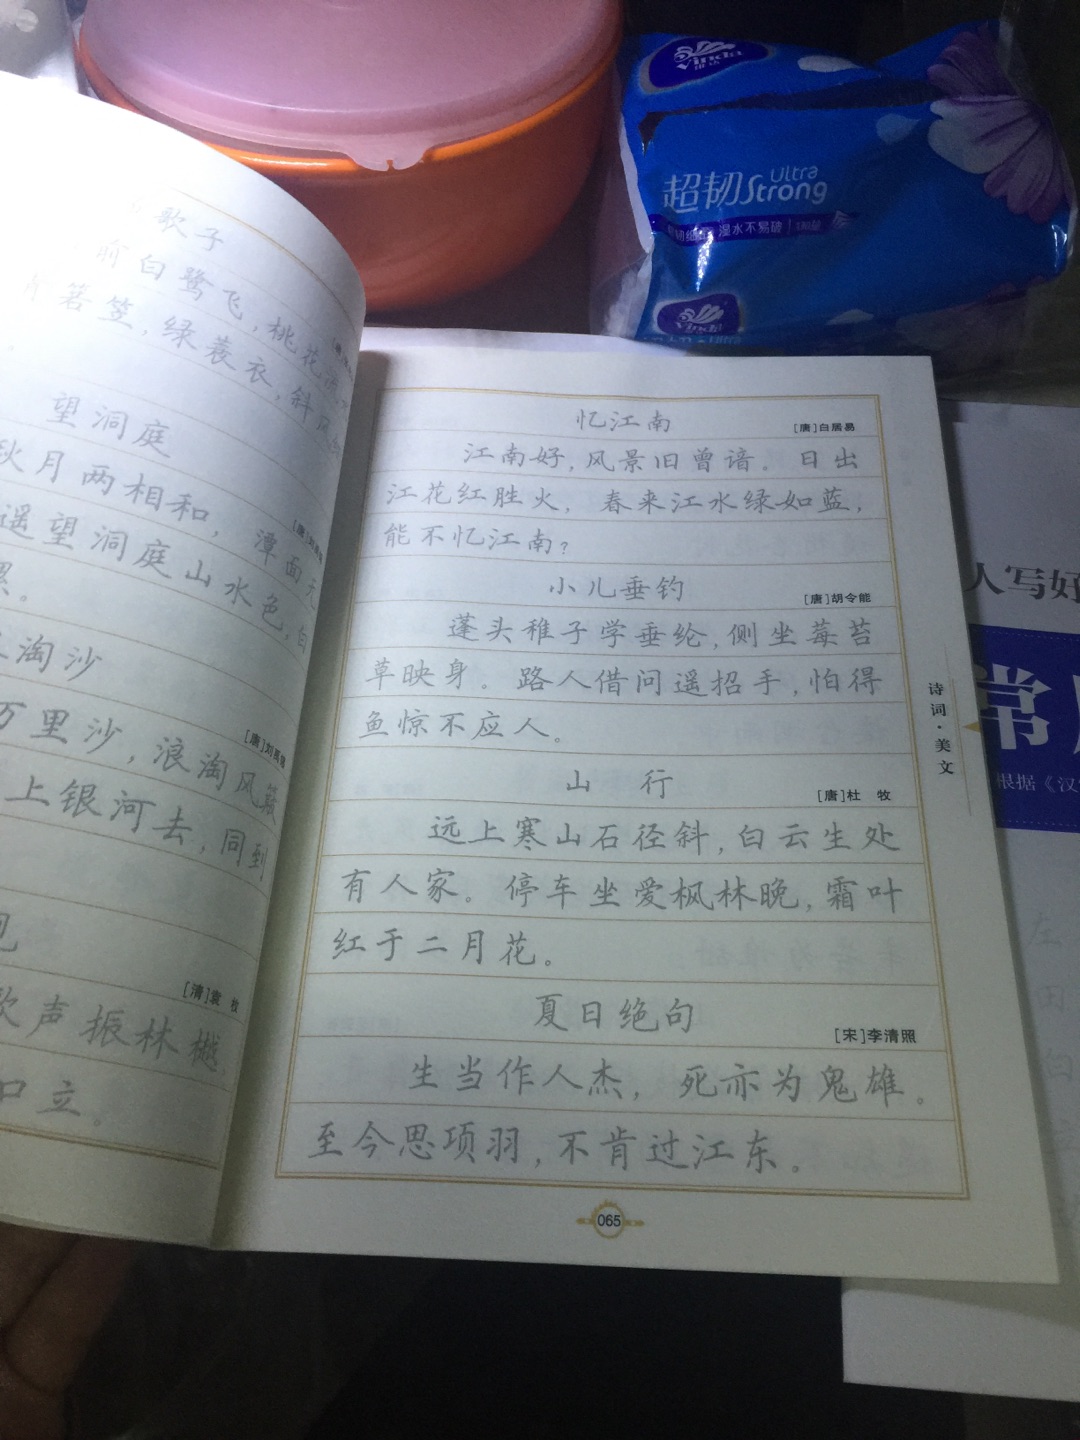 歌子
前白鹭飞，桃花
箬笠，绿蓑衣，斜风
望洞庭
秋月两相和，潭面无
遥望洞庭山水色，白
[唐]刘禹锡
淘沙
万里沙，浪淘风簸
上银河去，同到
[清]袁 枚
歌声振林樾，
口立。
忆江南
[唐]白居易
江南好，风景旧曾谙。日出
江花红胜火，春来江水绿如蓝，
能不忆江南？
小儿垂钓
[唐]胡令能
蓬头稚子学垂纶，侧坐莓苔
草映身。路人借问遥招手，怕得
鱼惊不应人。
山 行
[唐]杜 牧
远上寒山石径斜，白云生处
有人家。停车坐爱枫林晚，霜叶
红于二月花。
夏日绝句
[宋]李清照
生当作人杰，死亦为鬼雄。
至今思项羽，不肯过江东。
065
诗词·美文
Vinda
超韧 Ultra Strong
湿水不易破
人写好
常
根据《汉